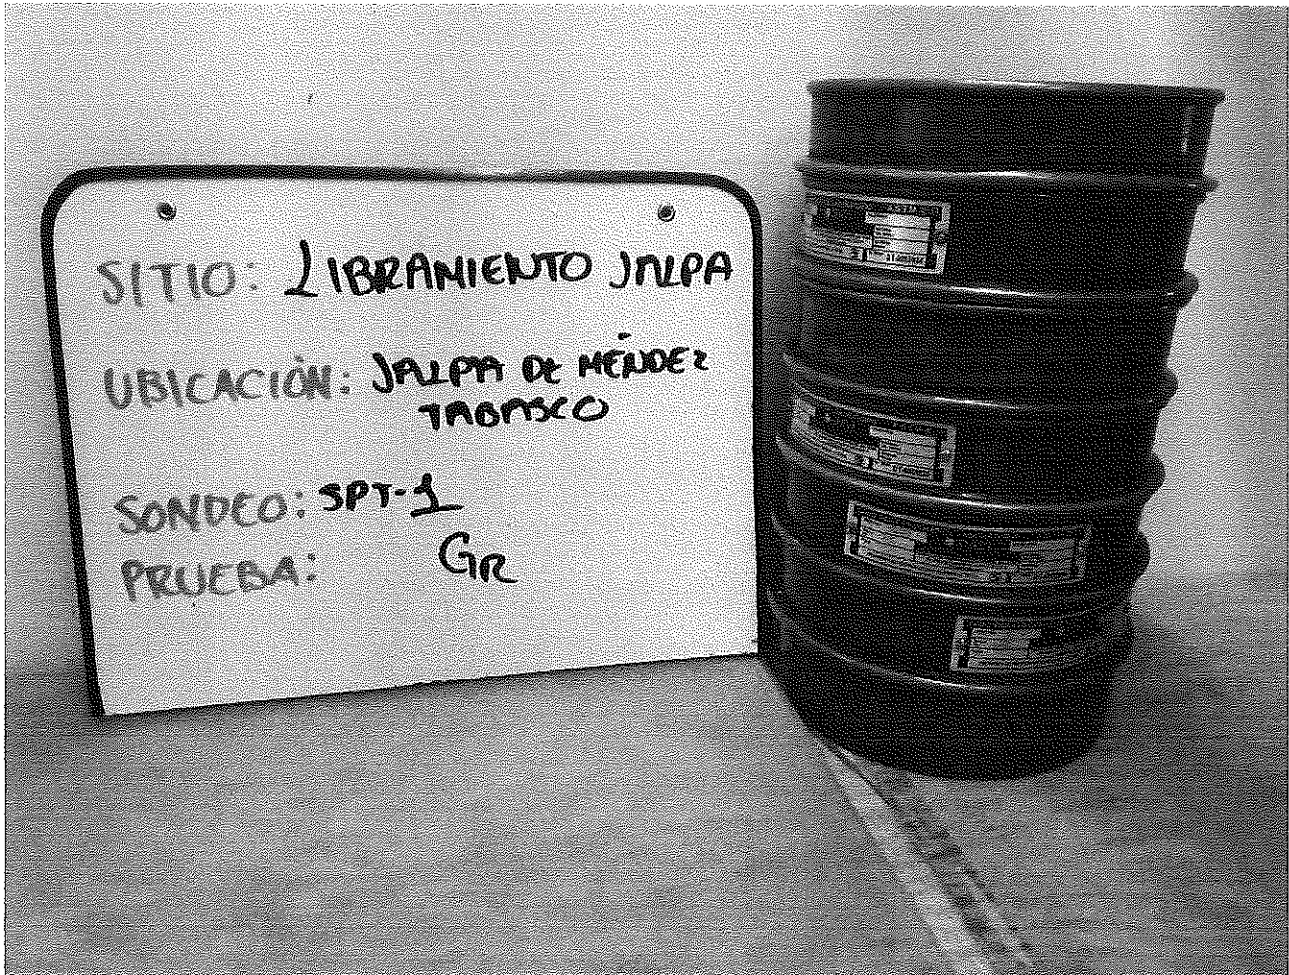 SITIO: LIBRAMIENTO JALPA
UBICACIÓN: JALPA DE MÉNDEZ
TABASCO
SONDEO: SPT-1
PRUEBA: GR